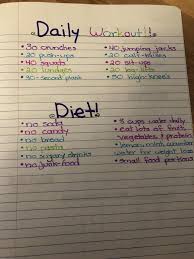 Daily Workout!!
• 30 crunches
• 20 push-ups
• 40 squats
• 20 lunges
• 30-second plank
• 40 jumping jacks
• 20 calf-raises
• 20 sit-ups
• 20 leg-lifts
• 50 high-knees
Diet!
• no soda
• no candy
• no bread
• no pasta
• no sugary drinks
• no junk-food
• 8 cups water daily
• eat lots of fruit,
vegetables & protein
• lemon, mint, cucumber
water for weight loss
• small food portions